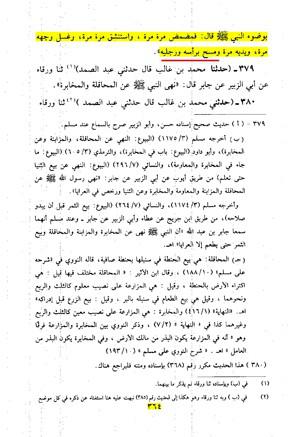 بوضوء النبي ﷺ قال: فمضمض مرة مرة ، واستنشق مرة مرة، وغسل وجهه
مرة، ويديه مرة ومسح برأسه ورجليه».
٣٧٩ـ (حدثنا محمد بن غالب قال حدثني عبد الصمد)(١) ثنا ورقاء
عن أبي الزبير عن جابر: «نهى النبي ﷺ عن المحاقلة والمخابرة».
٣٨٠ـ (حدثني محمد بن غالب قال حدثني عبد الصمد)(٢) ثنا ورقاء
٣٧٩ - أ) حديث صحيح إسناده حسن، وأبو الزبير صرح بالسماع عند مسلم.
ب) أخرجه مسلم (١١٧٥/٣) (البيوع: النهي عن المحاقلة، والمزابنة وعن
المخابرة)، وأبو داود (البيوع: باب في المخابرة)، والترمذي (٦٠٥/٣) (البيوع: ما
جاء في المخابرة والمعاومة)، والنسائي (٢٩٦/٧) (البيوع: النهي عن بيع الثنيا
حتى تعلم) من طريق أيوب عن أبي الزبير عن جابر: «نهى رسول الله ﷺ عن
المحاقلة والمزابنة والمخابرة وعن الثنيا ورخص في العرايا».
وأخرجه مسلم (١١٧٤/٣)، والنسائي (٢٦٤/٧) (البيوع: بيع الثمر قبل أن يبدو
صلاحه)، من طريق ابن جريج عن عطاء وأبي الزبير عن جابر - وعند مسلم أنهما
سمعا جابر بن عبد الله «أن النبي ﷺ نهى عن المخابرة والمزابنة والمحاقلة وبيع
الثمر حتى يطعم إلا العرايا» اهـ.
جـ) المحاقلة: هي بيع الحنطة في سنبلها بحنطة صافية، قاله النووي «في شرحه
على مسلم» (١٨٨/١٠)، وقال ابن الأثير: «المحاقلة مختلف فيها قيل: هي
اكتراء الأرض بالحنطة ، وقيل: هي المزارعة على نصيب معلوم كالثلث والربع
ونحوهما ، وقيل هي بيع الطعام في سنبله بالبر ، وقيل: بيع الزرع قبل إدراكه»
اهـ. «النهاية» (٤١٦/١) والمخابرة : هي المزارعة على نصيب معين كالثلث والربع
وغيرهما كذا في «النهاية» (٧/٢) ، وذكر النووي بين المخابرة والمزارعة فرقاً
وهو أن المزارعة يكون البذر من مالك الأرض ، وفي المخابرة يكون البذر من
العامل » اهـ . « شرح النووي على مسلم » (١٩٣/١٠)
(٣٨٠) هذا الحديث مكرر رقم (٣٦٨) بإسناده ومتنه فليراجع هناك.
(١) في (ب) وبإسناده ثنا ورقاء لم يذكر ما بينهما.
(٢) في (ب) وبه ثنا ورقاء وهو هكذا إلى حديث رقم (٣٨٥) نبهت عليه هنا استغناء عن ذكره في كل موضع
٣٦٤